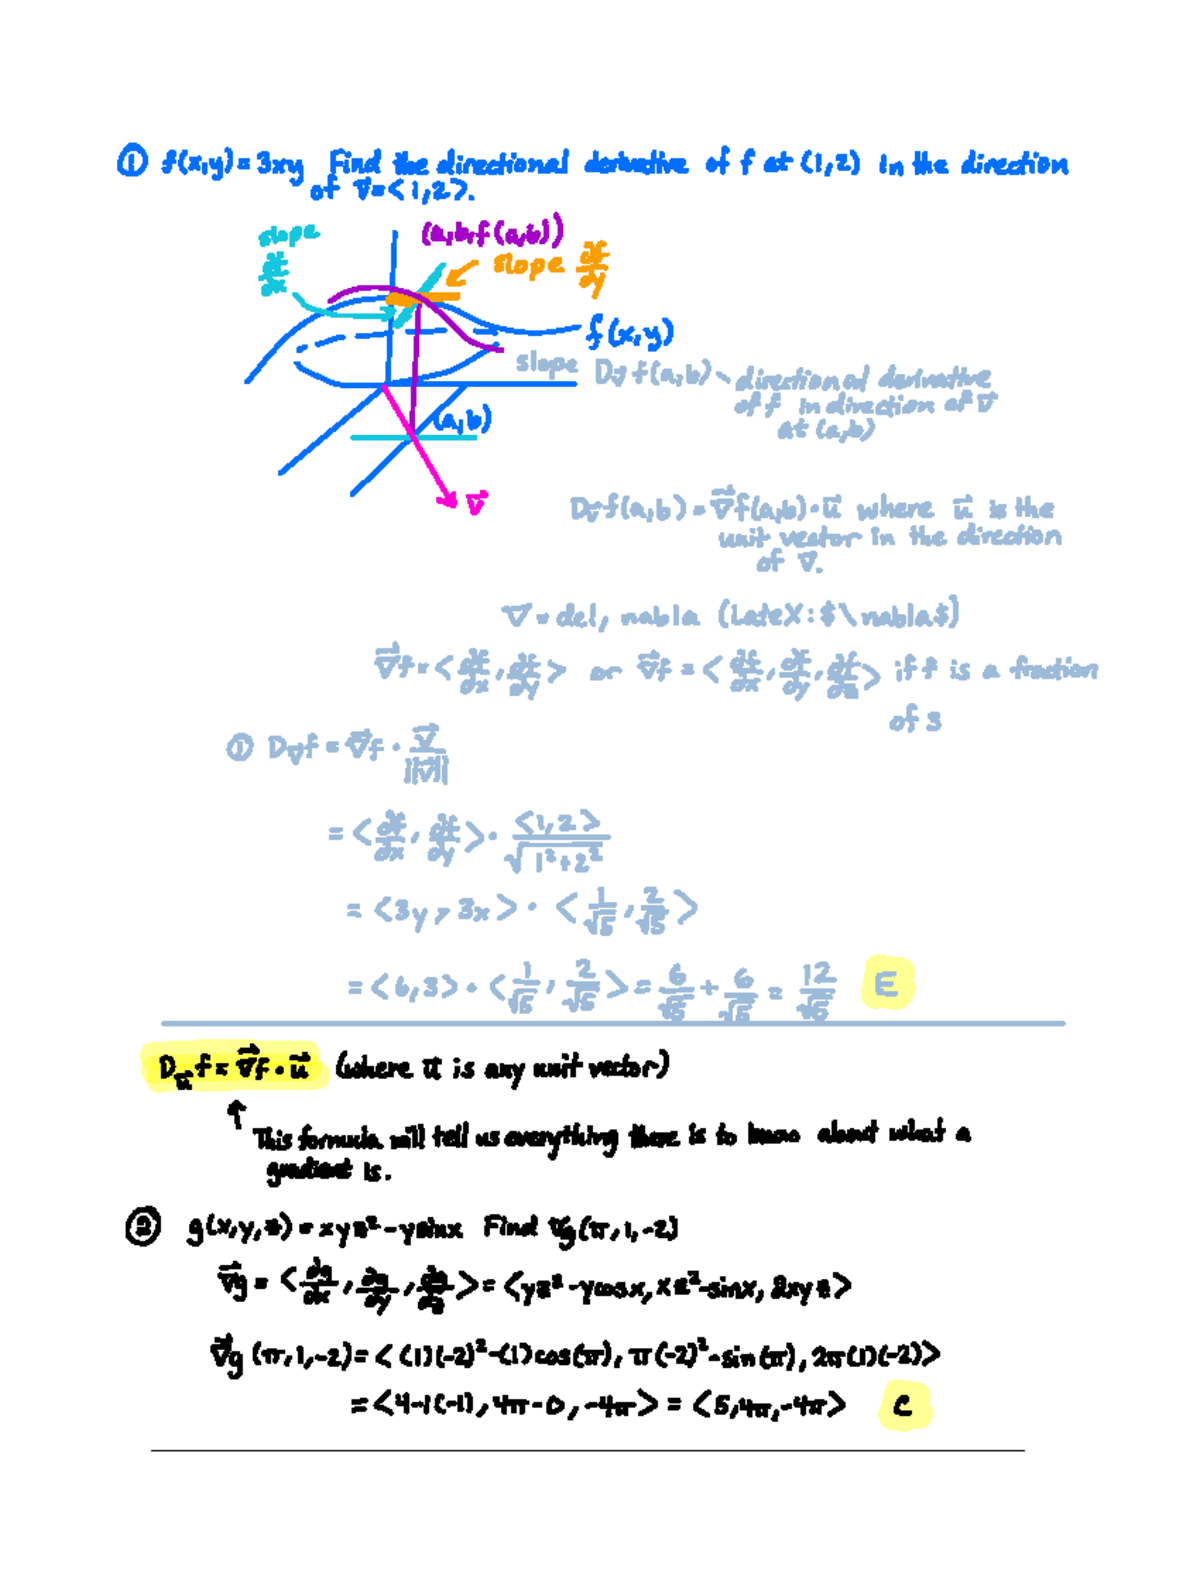 ① f(x,y) = 3xy Find the directional derivative of f at (1,2) in the direction
of v⃗ = <1,2>.
slope
∂f/∂x
(a,b,f(a,b))
slope ∂f/∂y
f(x,y)
slope D_v⃗ f(a,b) directional derivative
of f in direction of v⃗
at (a,b)
(a,b)
v⃗
D_v⃗ f(a,b) = ∇⃗f(a,b)·u⃗ where u⃗ is the
unit vector in the direction
of v⃗.
∇ = del, nabla (LateX: $\nabla$)
∇⃗f = <∂f/∂x, ∂f/∂y> or ∇⃗f = <∂f/∂x, ∂f/∂y, ∂f/∂z> if f is a fraction
of 3
① D_v⃗ f = ∇⃗f · v⃗/||v⃗||
= <∂f/∂x, ∂f/∂y> · <1,2>/√(1²+2²)
= <3y, 3x> · <1/√5, 2/√5>
= <6,3> · <1/√5, 2/√5> = 6/√5 + 6/√5 = 12/√5 E
D_u⃗ f = ∇⃗f · u⃗ (where u⃗ is any unit vector)
↑
This formula will tell us everything there is to know about what a
gradient is.
② g(x,y,z) = xyz² - ysinx Find ∇⃗g(π,1,-2)
∇⃗g = <∂g/∂x, ∂g/∂y, ∂g/∂z> = <yz² - ycosx, xz² - sinx, 2xyz>
∇⃗g (π,1,-2) = <(1)(-2)² - (1)cos(π), π(-2)² - sin(π), 2π(1)(-2)>
= <4-1(-1), 4π-0, -4π> = <5,4π,-4π> C